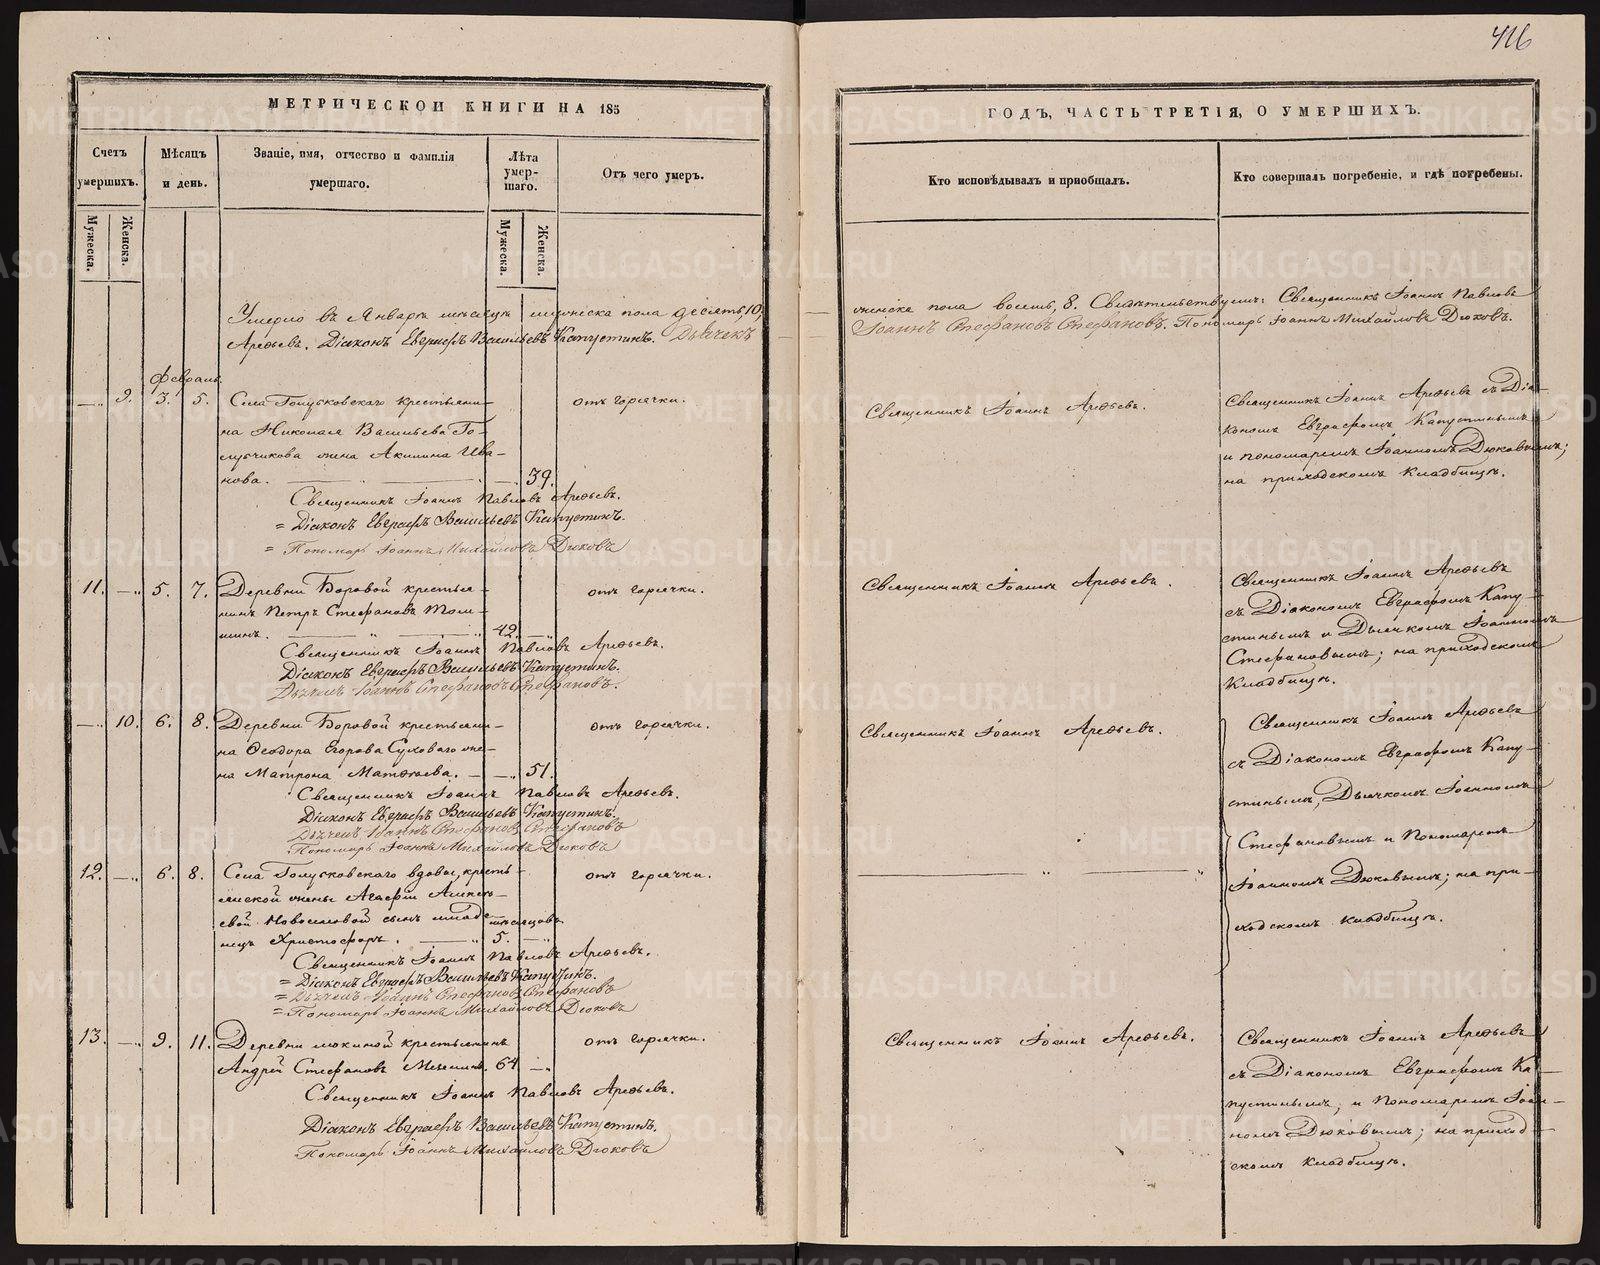 416
МЕТРИЧЕСКОЙ КНИГИ НА 185
ГОДЪ, ЧАСТЬ ТРЕТІЯ, О УМЕРШИХЪ.
Счетъ умершихъ.
Мѣсяцъ и день.
Званіе, имя, отчество и фамилія умершаго.
Лѣта умер-шаго.
Отъ чего умеръ.
Кто исповѣдывалъ и приобщалъ.
Кто совершалъ погребеніе, и гдѣ погребены.
Мужеска.
Женска.
Мужеска.
Женска.
Умерло въ Январѣ мѣсяцѣ мужеска пола десять, 10. женска пола восемь, 8. Свидѣтельствуемъ: Священникъ Іоаннъ Павловъ
Арефьевъ. Діаконъ Евграфъ Васильевъ Капустинъ. Дьячекъ Іоаннъ Стефановъ Стефановъ. Пономарь Іоаннъ Михайловъ Дюковъ.
Февраль.
9. 3. 5. Села крестьяни-
на Николая Васильева Го-
жена Акилина Ива-
нова. 39.
отъ горячки.
Священникъ Іоаннъ Павловъ Арефьевъ.
= Діаконъ Евграфъ Васильевъ Капустинъ.
= Пономарь Іоаннъ Михайловъ Дюковъ
Священникъ Іоаннъ Арефьевъ.
Священникъ Іоаннъ Арефьевъ съ Діа-
кономъ Евграфомъ Капустинымъ
и пономаремъ Іоанномъ Дюковымъ;
на приходскомъ кладбищѣ.
11. 5. 7. Деревни Боровой крестья-
нинъ Петръ Стефановъ
42.
отъ горячки.
Священникъ Іоаннъ Павловъ Арефьевъ.
Діаконъ Евграфъ Васильевъ Капустинъ.
Іоаннъ Стефановъ Стефановъ.
Священникъ Іоаннъ Арефьевъ.
Священникъ Іоаннъ Арефьевъ
съ Діакономъ Евграфомъ Капу-
стинымъ и Дьячкомъ Іоанномъ
Стефановымъ; на приходскомъ
кладбищѣ.
10. 6. 8. Деревни Боровой крестьяни-
на Ѳеодора Егорова Суховаго же-
на Матрона Матѳеева. 51.
отъ горячки.
Священникъ Іоаннъ Павловъ Арефьевъ.
Діаконъ Евграфъ Васильевъ Капустинъ.
Іоаннъ Стефановъ Стефановъ
Пономарь Іоаннъ Михайловъ Дюковъ
Священникъ Іоаннъ Арефьевъ.
Священникъ Іоаннъ Арефьевъ
съ Діакономъ Евграфомъ Капу-
стинымъ, Дьячкомъ Іоанномъ
Стефановымъ и Пономаремъ
Іоанномъ Дюковымъ; на при-
ходскомъ кладбищѣ.
12. 6. 8. Села вдовы, кресть-
янской жены Агафіи Алексѣ-
евой Новоселовой сынъ младе-
нецъ Христофоръ. мѣсяцовъ 5.
отъ горячки.
Священникъ Іоаннъ Павловъ Арефьевъ.
= Діаконъ Евграфъ Васильевъ Капустинъ.
= Іоаннъ Стефановъ Стефановъ
= Пономарь Іоаннъ Михайловъ Дюковъ
13. 9. 11. Деревни крестьянинъ
Андрей Стефановъ 64
отъ горячки.
Священникъ Іоаннъ Павловъ Арефьевъ.
Діаконъ Евграфъ Васильевъ Капустинъ.
Пономарь Іоаннъ Михайловъ Дюковъ
Священникъ Іоаннъ Арефьевъ.
Священникъ Іоаннъ Арефьевъ
съ Діакономъ Евграфомъ Ка-
пустинымъ, и Пономаремъ Іоан-
номъ Дюковымъ; на приход-
скомъ кладбищѣ.
METRIKI.GASO-URAL.RU